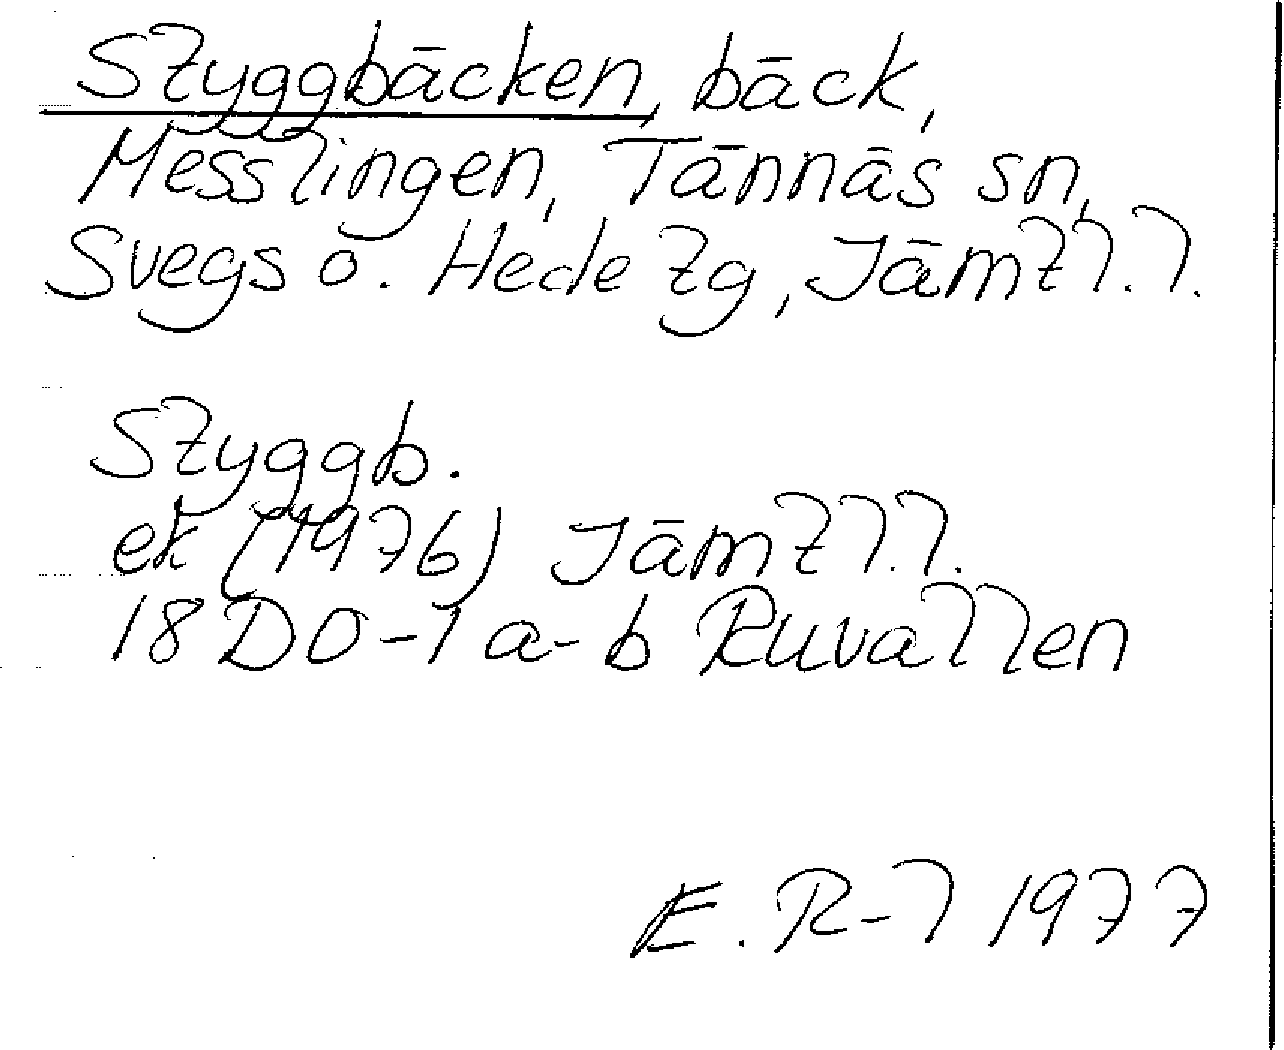 Styggbäcken, bäck,
Messlingen, Tännäs sn,
Svegs o. Hede tg, Jämtl.l.
Styggb.
ek (1976) Jämtl.l.
18D0-1a-b Ruvallen
E.R-l 1977